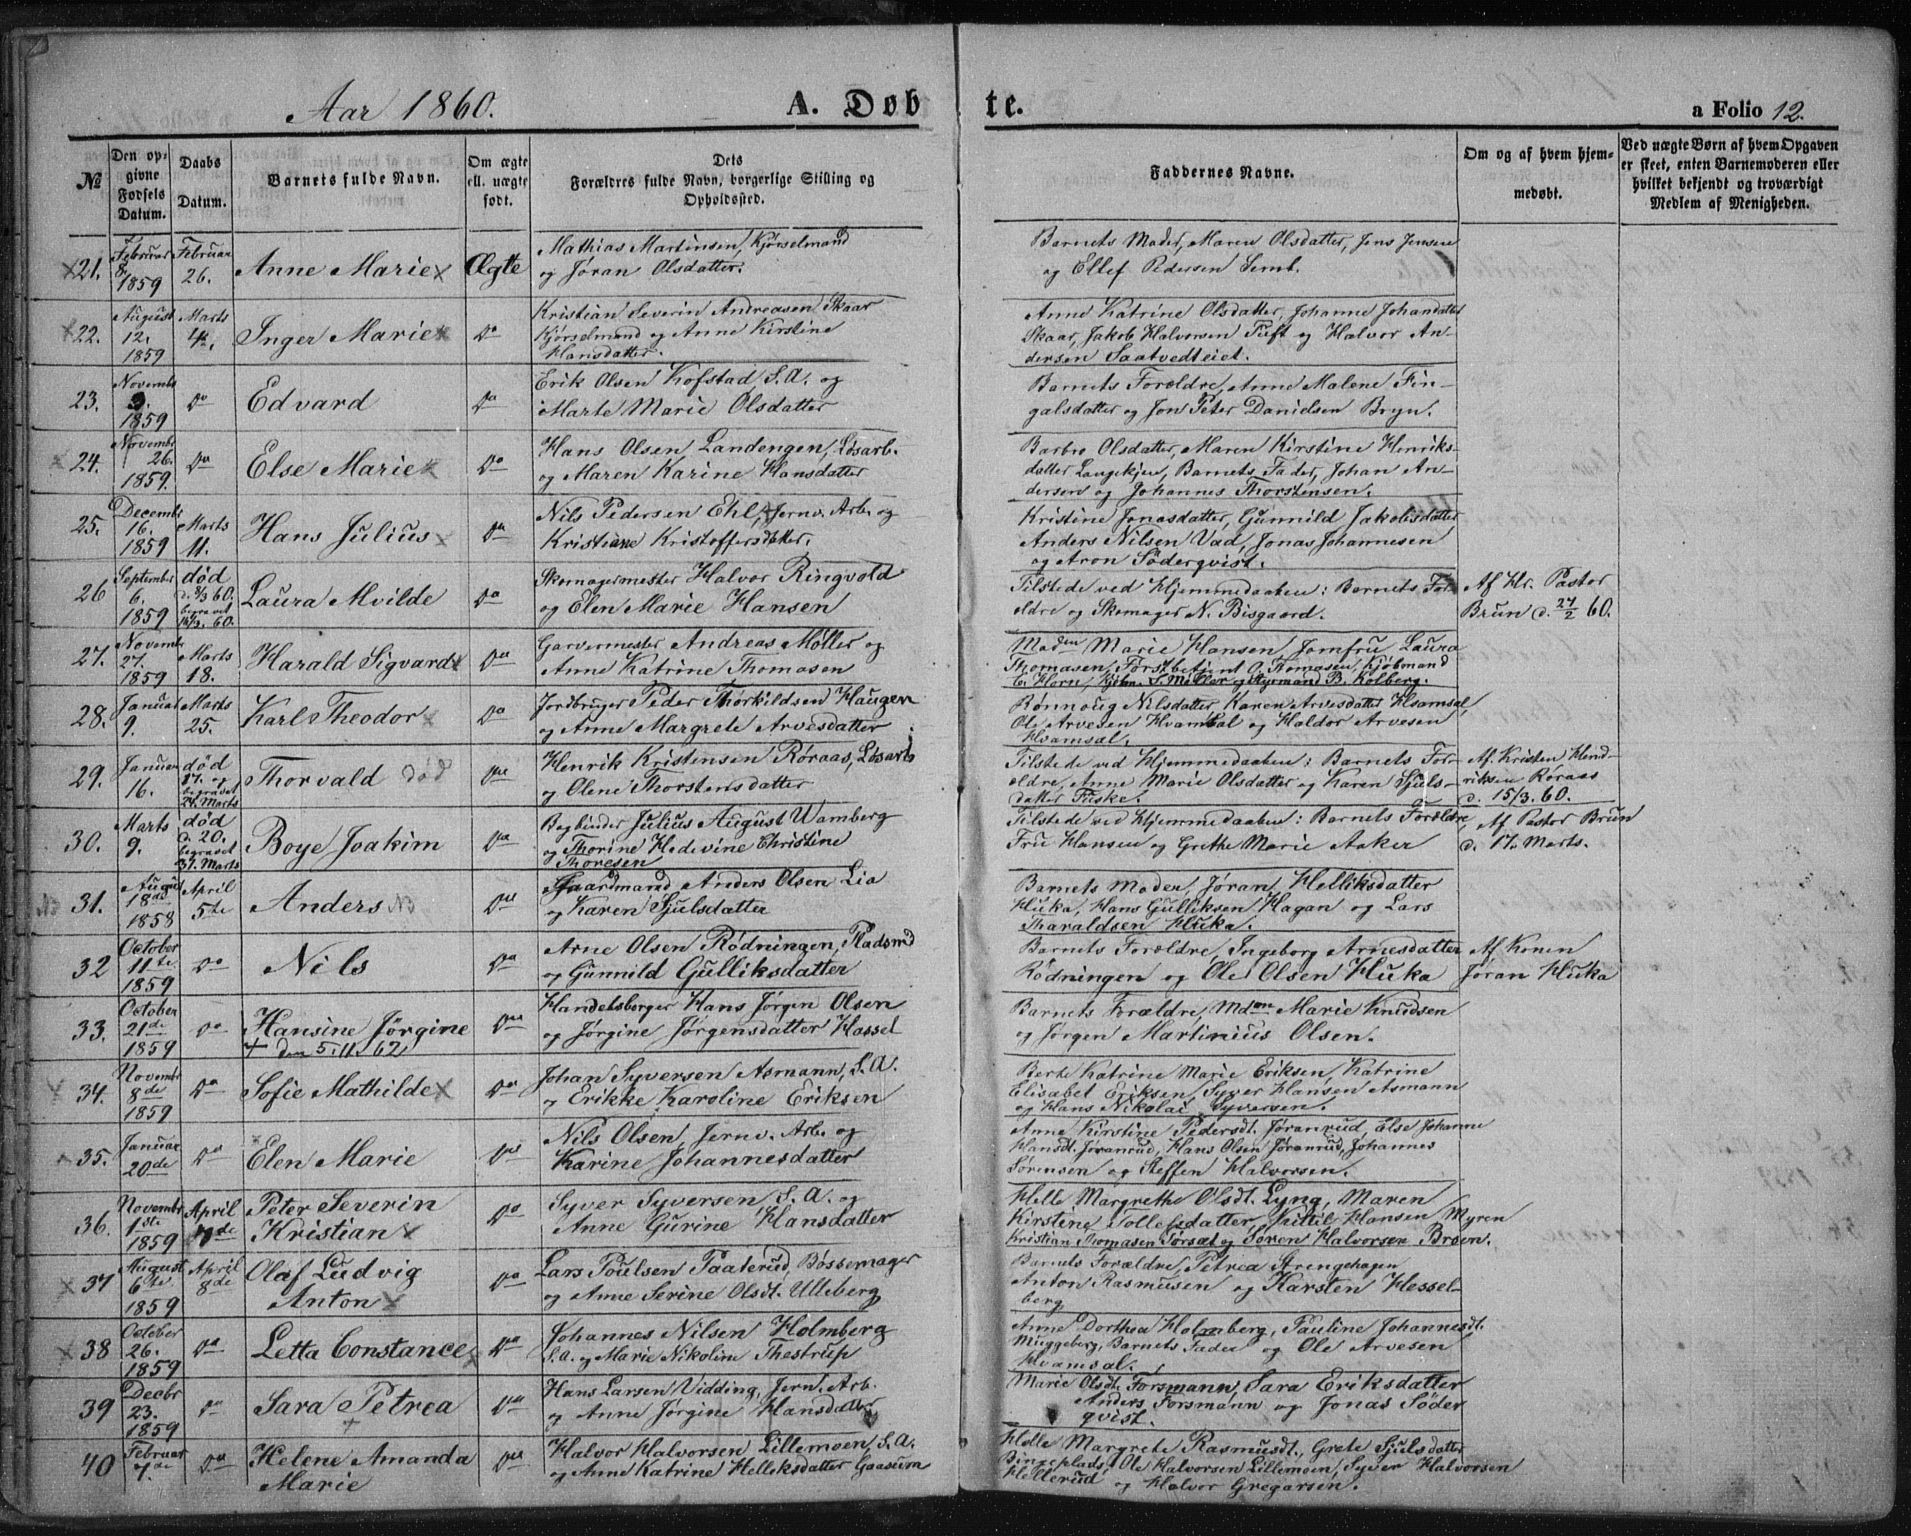 Aar 1860.
A. Døbte.
a Folio 12.
№
Den opgivne Fødsels Datum.
Daabs Datum.
Barnets fulde Navn.
Om ægte ell. uægte født.
Dets Forældres fulde Navn, borgerlige Stilling og Opholdssted.
Faddernes Navne.
Om og af hvem hjemmedøbt.
Ved uægte Børn af hvem Opgaven er skeet, enten Barnemoderen eller hvilket bekjendt og troværdigt Medlem af Menigheden.
21. Februar 8. 1859 Februar 26. Anne Marie Ægte
Mathias Martinsen, Kjørselmand
og Jøran Olsdatter.
Barnets Moder, Maren Olsdatter, Jens Jensen
og Ellef Pedersen Semb.
22. August 12. 1859 Marts 4de. Inger Marie Do
Kristian Severin Andreasen Skaar
Kjørselmand og Anne Kirstine
Hansdatter.
Anne Katrine Olsdatter, Johanne Johandatter
Skaar, Jakob Halvorsen Tuft og Halvor An-
dersen Saatvedteiet.
23. Novembr 9. 1859 Do Edvard Do
Erik Olsen Kofstad S.A. og
Marte Marie Olsdatter
Barnets Forældre, Anne Malene Fin-
galsdatter og Jon Peter Danielsen Bryn.
24. Novembr 26. 1859. Do Else Marie Do
Hans Olsen Landengen, Løsarb.
og Maren Karine Hansdatter
Barbro Olsdatter, Maren Kirstine Henriks-
datter Langekjen, Barnets Fader, Johan An-
dersen og Johannes Thorstensen.
25. Decembr 16. 1859 Marts 11. Hans Julius Do
Nils Pedersen Ehl, Jernv. Arb. og
Kristiane Kristoffersdatter.
Kristine Jonasdatter, Gunnild Jakobsdatter
Anders Nilsen Vad, Jonas Johannesen
og Aron Söderqvist.
26 September 6. 1859 død d. 8/3 60. begravet 16/3. 60. Laura Alvilde Do
Skomagermester Halvor Ringvold
og Elen Marie Hansen
Tilstede ved Hjemmedaaben: Barnets For-
ældre og Skomager N. Bisgaard.
Af Hr. Pastor
Brun d. 27/2 60.
27. Novemb. 27. 1859 Marts 18. Harald Sigvard Do
Garvermester Andreas Møller og
Anne Katrine Thomasen
Maden Marie Hansen, Jomfru Laura
Thomasen, Forstbetjent O. Thomasen, Kjøbmand
C. Horn, Kjøbm. S. Møller og Styrmand B. Kolberg.
28. Januar 9. Marts 25. Karl Theodor Do
Jordbruger Peder Thorkildsen Haugen
og Anne Margrete Arvesdatter
Rønnoug Nilsdatter, Karen Arvesdatter Hvamsal,
Ole Arvesen Hvamsal og Haldor Arvesen
Hvamsal.
29. Januar 16. død 17. og begravet 24. Marts Thorvald død Do
Henrik Kristensen Røraas, Løsarb
og Olene Thorstensdatter
Tilstede ved Hjemmedaaben: Barnets For-
ældre, Anne Marie Olsdatter og Karen Sjuls-
datter Fiske.
Af Kristen Hend-
riksen Røraas
d. 15/3. 60.
30. Marts 9. død d. 20. begravet 31. Marts Boye Joakim Do
Bogbinder Julius August Wamberg
og Thorine Hedevine Christine
Thoresen
Tilstede ved Hjemmedaaben: Barnets Forældre,
Fru Hansen og Grethe Marie Aaker
Af Pastor Brun
d. 17. Marts.
31. August 18de 1858 April 5te Anders Do
Gaardmand Anders Olsen Lia
og Karen Sjulsdatter
Barnets Moder, Jøran Helliksdatter
Huka, Hans Gulliksen Hagan og Lars
Tharaldsen Huka.
32 October 11te 1859 Do Nils Do
Arne Olsen Rødningen, Pladsmd
og Gunnild Gulliksdatter
Barnets Forældre, Ingeborg Arnesdatter
Rödningen og Ole Olsen Huka
Af Konen
Jøran Huka
33. October 21de 1859 Do Hansine Jørgine Do
+ den 5.11.62
Handelsborger Hans Jørgen Olsen
og Jørgine Jørgensdatter Hassel
Barnets Forældre, Mdm Marie Knudsen
og Jørgen Martinius Olsen.
34. Novembr 8de 1859 Do Sofie Mathilde Do
Johan Syversen Asmann, S.A.
og Erikke Karoline Eriksen
Berte Katrine Marie Eriksen, Katrine
Elisabet Eriksen, Syver Hansen Asmann
og Hans Nikolai Syversen.
35. Januar 20de Do Elen Marie Do
Nils Olsen, Jernv. Arb. og
Karine Johannesdatter
Anne Kirstine Pedersdt. Jøranrud, Else Johanne
Hansdt. Jøranrud, Hans Olsen Jøranrud, Johannes
Sørensen og Steffen Halvorsen.
36. Novembr 1ste 1859 April 7de Peter Severin
Kristian Do
Syver Syversen, S.A. og
Anne Gurine Hansdatter
Helle Margrethe Olsdt. Lyng, Maren
Kirstine Tollefsdatter, Kittil Hansen Myren
Kristian Thomasen Torsæt og Søren Halvorsen Broen.
37 August 6te 1859 April 8de Olaf Ludvig
Anton Do
Lars Poulsen Paaterud, Bøssemager
og Anne Serine Olsdt. Ulleberg
Barnets Forældre, Petrea Strengehagen
Anton Rasmusen og Karsten Hessel-
berg
38 October 26. 1859 Do Letta Constance Do
Johannes Nilsen Holmberg
S.A. og Marie Nikoline Thestrup
Anne Dorthea Holmberg, Pauline Johannesdt.
Muggeberg, Barnets Fader og Ole Arvesen
Hvamsal.
39 Decbr 23. 1859 Do Sara Petrea Do
Hans Larsen Vidding, Jern. Arb.
og Anne Jørgine Hansdatter
Marie Olsdt. Forsmann, Sara Eriksdatter
Anders Forsmann og Jonas Söder
qvist.
40 Februar 7.de Do Helene Amanda
Marie Do
Halvor Halvorsen Lillemoen, S.A.
og Anne Katrine Helleksdatter Gaasum
Helle Margrete Rasmusdt., Grete Sjulsdatter
Bingeplads, Ole Halvorsen Lillemoen, Syver Halvorsen
Hellerud og Halvor Gregarsen.